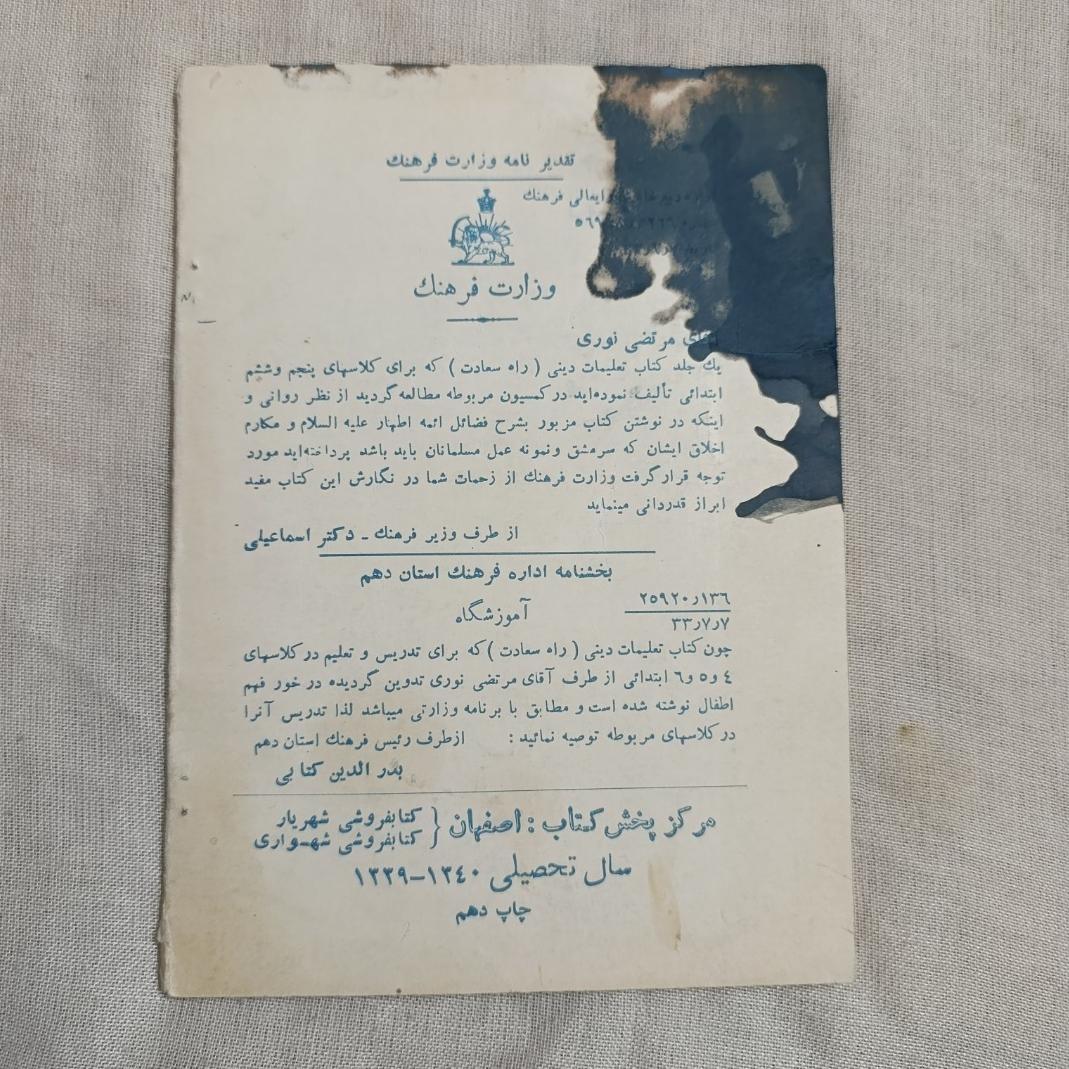 تقدیر نامه وزارت فرهنك
فرهنك
وزارت فرهنك
مرتضی نوری
یك جلد کتاب تعلیمات دینی ( راه سعادت ) که برای کلاسهای پنجم وششم
ابتدائی تألیف نموده‌اید در کمسیون مربوطه مطالعه گردید از نظر روانی و
اینکه در نوشتن کتاب مزبور بشرح فضائل ائمه اطهار علیه السلام و مکارم
اخلاق ایشان که سرمشق ونمونه عمل مسلمانان باید باشد پرداخته‌اید مورد
توجه قرار گرفت وزارت فرهنك از زحمات شما در نگارش این کتاب مفید
ابراز قدردانی مینماید
از طرف وزیر فرهنك ـ دکتر اسماعیلی
بخشنامه اداره فرهنك استان دهم
۲۵۹۲۰٫۱۳۶
۳۳٫۷٫۷
آموزشگاه
چون کتاب تعلیمات دینی ( راه سعادت ) که برای تدریس و تعلیم در کلاسهای
٤ و٥ و٦ ابتدائی از طرف آقای مرتضی نوری تدوین گردیده در خور فهم
اطفال نوشته شده است و مطابق با برنامه وزارتی میباشد لذا تدریس آنرا
در کلاسهای مربوطه توصیه نمائید : ازطرف رئیس فرهنك استان دهم
بدر الدین کتابی
مرکز پخش کتاب : اصفهان { کتابفروشی شهریار
کتابفروشی شهسواری
سال تحصیلی ۱۳٤۰–۱۳۳۹
چاپ دهم